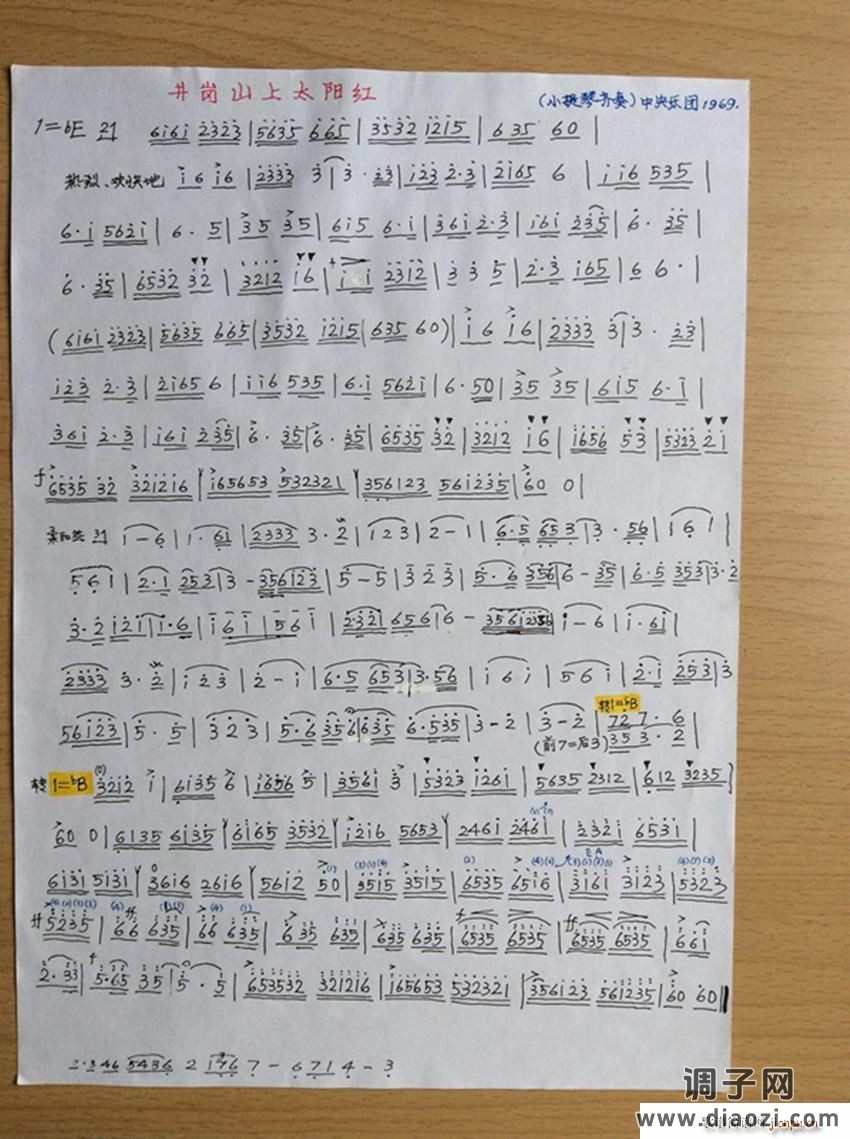 井岗山上太阳红
(小提琴齐奏) 中央乐团 1969.
1=bE 6161 2323 | 5635 665 | 3532 1215 | 6 35 60 |
热烈、欢快地 16 16 | 2333 3 | 3 · 23 | 123 2·3 | 2165 6 | 116 535 |
6·1 5621 | 6 · 5 | 35 35 | 615 6·1 | 361 2·3 | 161 235 | 6 · 35 |
6 · 35 | 6532 32 | 3212 16 | 2312 | 3 3 5 | 2·3 165 | 6 6 · |
(6161 2323 | 5635 665 | 3532 1215 | 635 60) | 16 16 | 2333 3 | 3 · 23 |
123 2·3 | 2165 6 | 116 535 | 6·1 5621 | 6 · 50 | 35 35 | 615 6·1 |
361 2·3 | 161 235 | 6 · 35 | 6 · 35 | 6535 32 | 3212 16 | 1656 53 | 5323 21
f 6535 32 321216 | 165653 532321 | 356123 561235 | 60 0 |
1 – 6 | 1 · 61 | 2333 3 · 2 | 1 2 3 | 2 – 1 | 6·5 653 | 3 · 56 | 1 6 1 |
5 6 1 | 2·1 253 | 3 – 356123 | 5 – 5 | 3 2 3 | 5 · 6 356 | 6 – 35 | 6·5 353 | 3·2
3·2 121 | 1·6 | 1 6 1 | 5 6 1 | 2·321 656 | 6 – | 1 – 6 | 1 · 61 |
2333 3 · 2 | 1 2 3 | 2 – 1 | 6·5 653 | 3·56 | 1 6 1 | 5 6 1 | 2·1 253 | 3
转1=bB
56123 | 5 · 5 | 3 2 3 | 5·6 356 | 635 6·535 | 3 – 2 | 3 – 2 | 72 7 · 6
(前7=后3) 35 3 · 2
转 1=bB 3212 1 | 6135 6 | 1656 5 | 3561 3 | 5323 1261 | 5635 2312 | 612 3235
60 0 | 6135 6135 | 6165 3532 | 1216 5653 | 2461 2461 | 2321 6531 |
6131 5131 | 3616 2616 | 5612 50 | 3515 3515 | 6535 6516 | 3161 3123 | 5323
5235 | 66 635 | 66 635 | 635 635 | 635 635 | 6535 6535 | 6535 6535 | 661
2·33 | 5·65 35 | 5 · 5 | 653532 321216 | 165653 532321 | 356123 561235 | 60 60
2·346 5436 2 176 7 – 6 71 4 – 3
调子网
www.diaozi.com